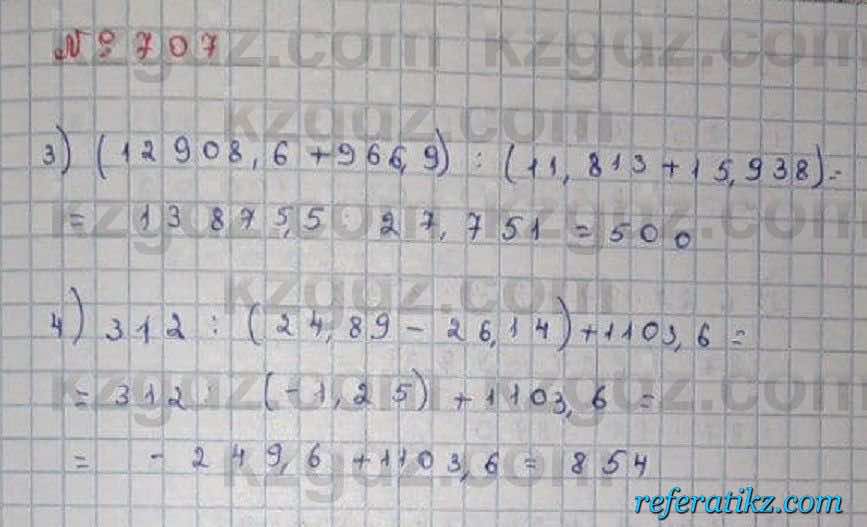 № 707
3) (12908,6 + 966,9) : (11,813 + 15,938) =
= 13875,5 : 27,751 = 500
4) 312 : (24,89 - 26,14) + 1103,6 =
= 312 : (-1,25) + 1103,6 =
= - 249,6 + 1103,6 = 854
kzgdz.com kzgdz.com
kzgdz.com kzgdz.com
kzgdz.com kzgdz.com
referatikz.com